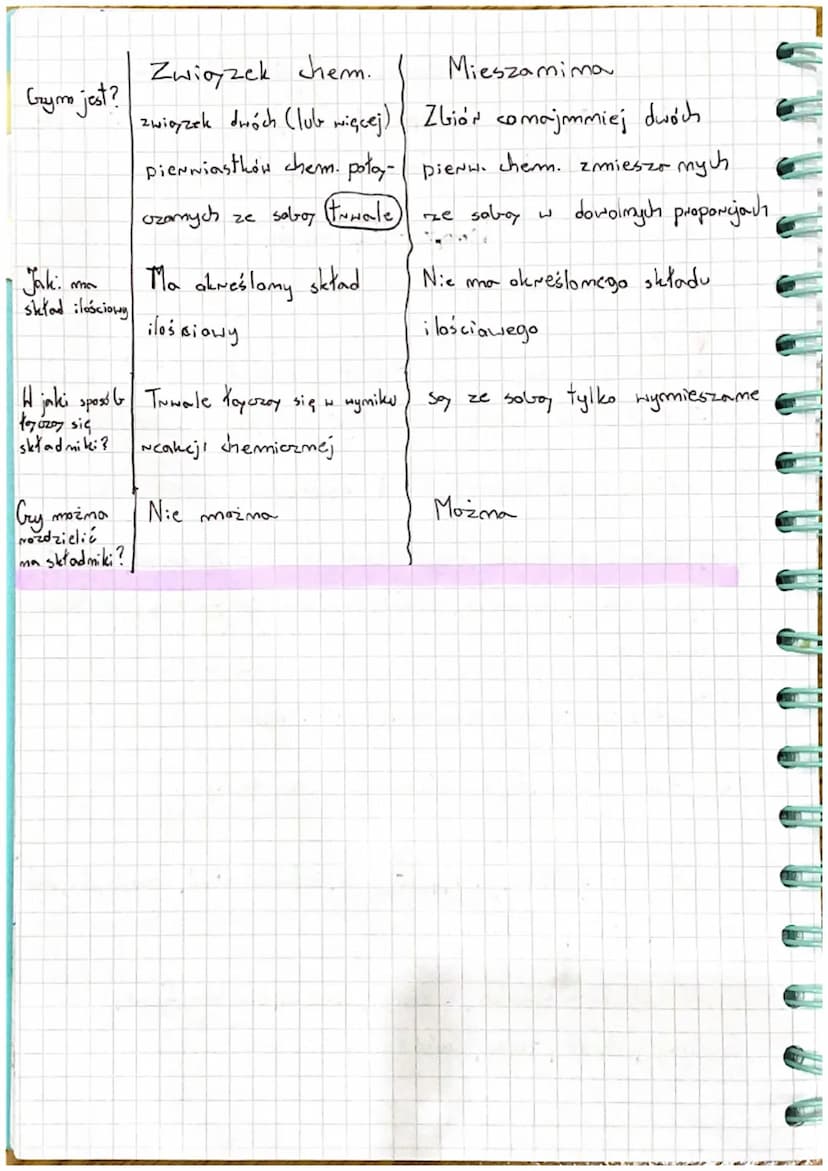 Związek chem. Mieszanina
Czym jest?
związek dwóch (lub więcej) Zbiór conajmniej dwóch
pierwiastków chem. połą- pierw. chem. zmieszanych
czonych ze sobą trwale ze sobą w dowolnych proporcjach
Jaki ma Ma określony skład Nie ma określonego składu
skład ilościowy
ilościowy ilościowego
W jaki sposób Trwale łączą się w wyniku są ze sobą tylko wymieszane
łączą się
składniki? reakcji chemicznej
Czy można Nie można Można
rozdzielić
na składniki?